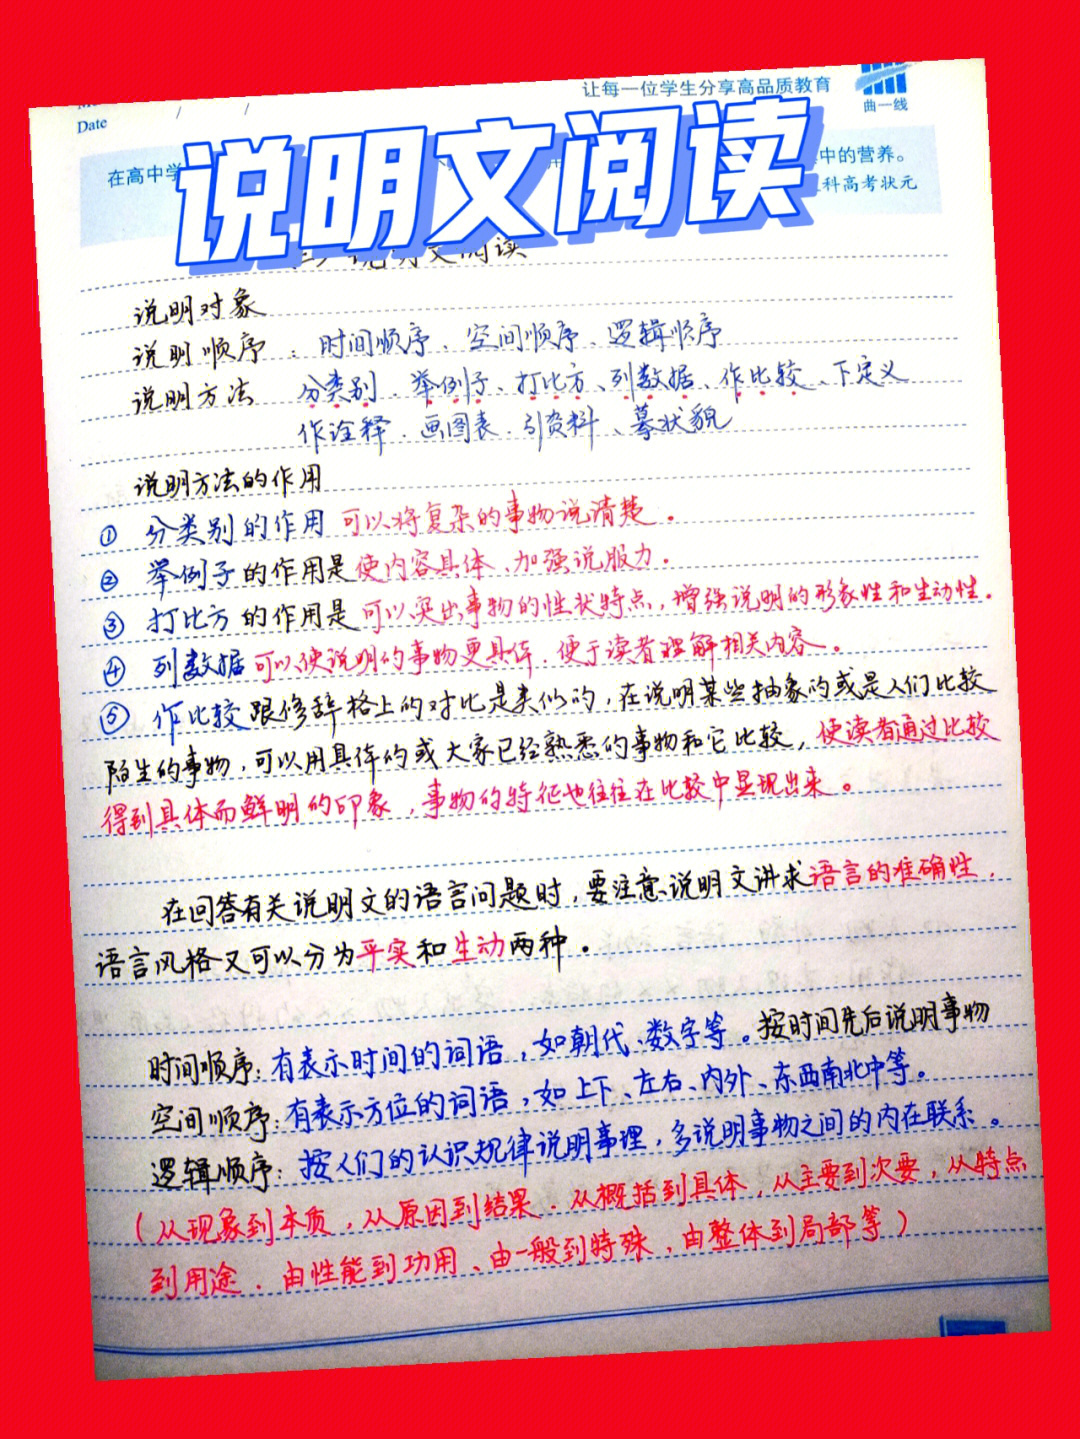 让每一位学生分享高品质教育
曲一线
Date / /
在高中学
中的营养。
科高考状元
说明文阅读
说明文阅读
说明对象
说明顺序：时间顺序、空间顺序、逻辑顺序
说明方法 分类别、举例子、打比方、列数据、作比较、下定义
作诠释、画图表、引资料、摹状貌
说明方法的作用
① 分类别的作用可以将复杂的事物说清楚。
② 举例子的作用是使内容具体、加强说服力。
③ 打比方的作用是可以突出事物的性状特点，增强说明的形象性和生动性。
④ 列数据可以使说明的事物更具体，便于读者理解相关内容。
⑤ 作比较跟修辞格上的对比是类似的，在说明某些抽象的或是人们比较
陌生的事物，可以用具体的或大家已经熟悉的事物和它比较，使读者通过比较
得到具体而鲜明的印象，事物的特征也往往在比较中显现出来。
在回答有关说明文的语言问题时，要注意说明文讲求语言的准确性，
语言风格又可以分为平实和生动两种。
时间顺序：有表示时间的词语，如朝代、数字等。按时间先后说明事物
空间顺序：有表示方位的词语，如上下、左右、内外、东西南北中等。
逻辑顺序：按人们的认识规律说明事理，多说明事物之间的内在联系。
（从现象到本质，从原因到结果．从概括到具体，从主要到次要，从特点
到用途．由性能到功用、由一般到特殊，由整体到局部等）